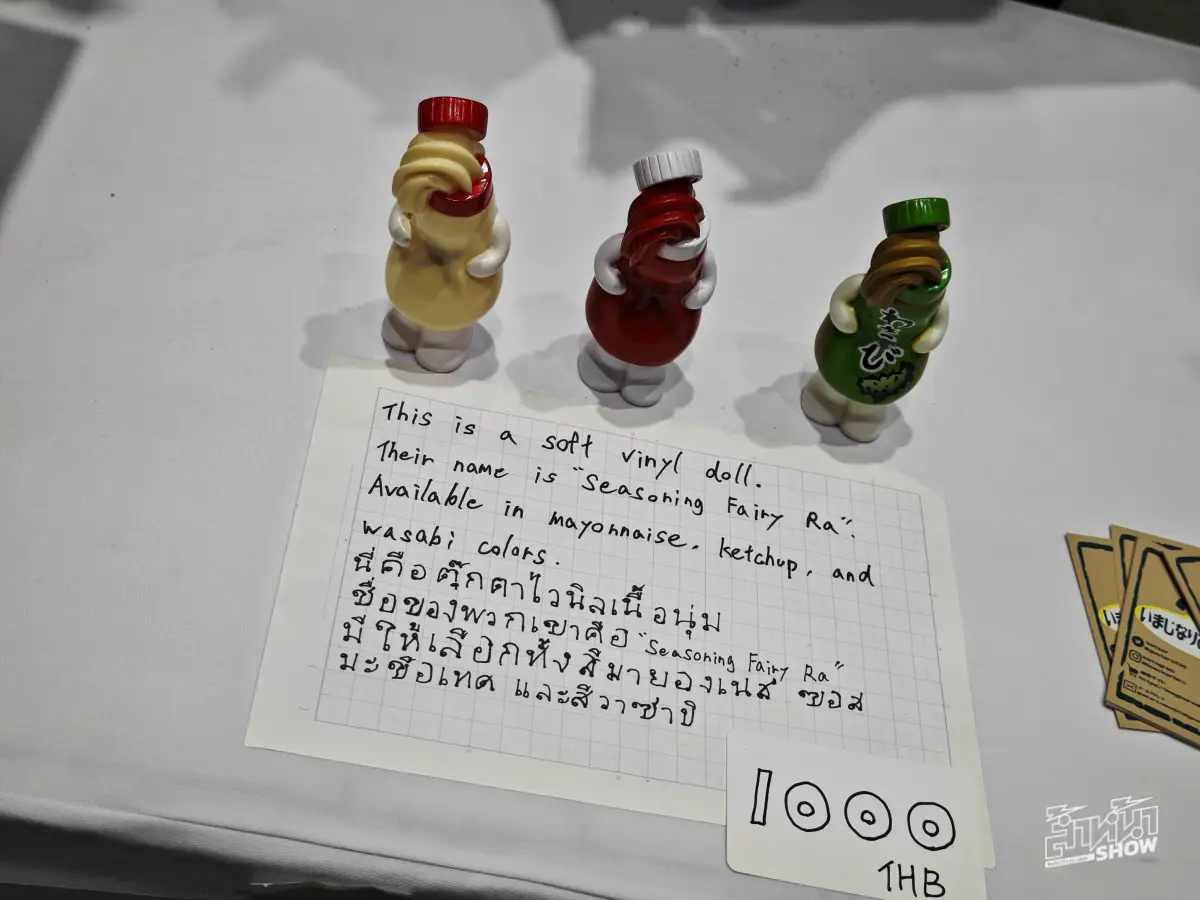 わさび
This is a soft vinyl doll.
Their name is "Seasoning Fairy Ra".
Available in mayonnaise, ketchup, and
wasabi colors.
นี่คือตุ๊กตาไวนิลเนื้อนุ่ม
ชื่อของพวกเขาคือ "Seasoning Fairy Ra"
มีให้เลือกทั้งสีมายองเนส ซอส
มะเขือเทศ และสีวาซาบิ
1000
THB
いまじなり
SHOW